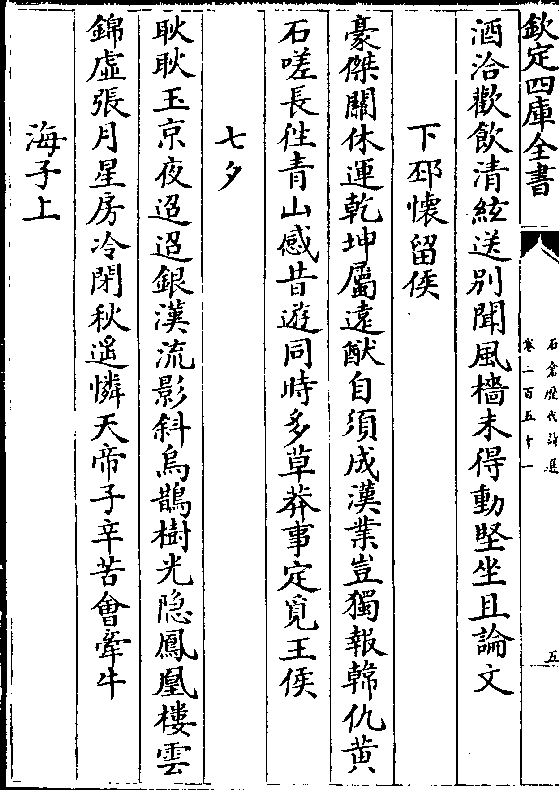 欽定四庫全書
石倉歷代詩選
卷二百五十一
五
酒洽歡飲清絃送別聞風檣未得動堅坐且論文
下邳懷留侯
豪傑關休運乾坤屬遠猷自須成漢業豈獨報韓仇黃
石嗟長往青山感昔遊同時多草莽事定覓王侯
七夕
耿耿玉京夜迢迢銀漢流影斜烏鵲樹光隐鳳凰樓雲
錦虛張月星房冷閉秋遙憐天帝子辛苦會牽牛
海子上